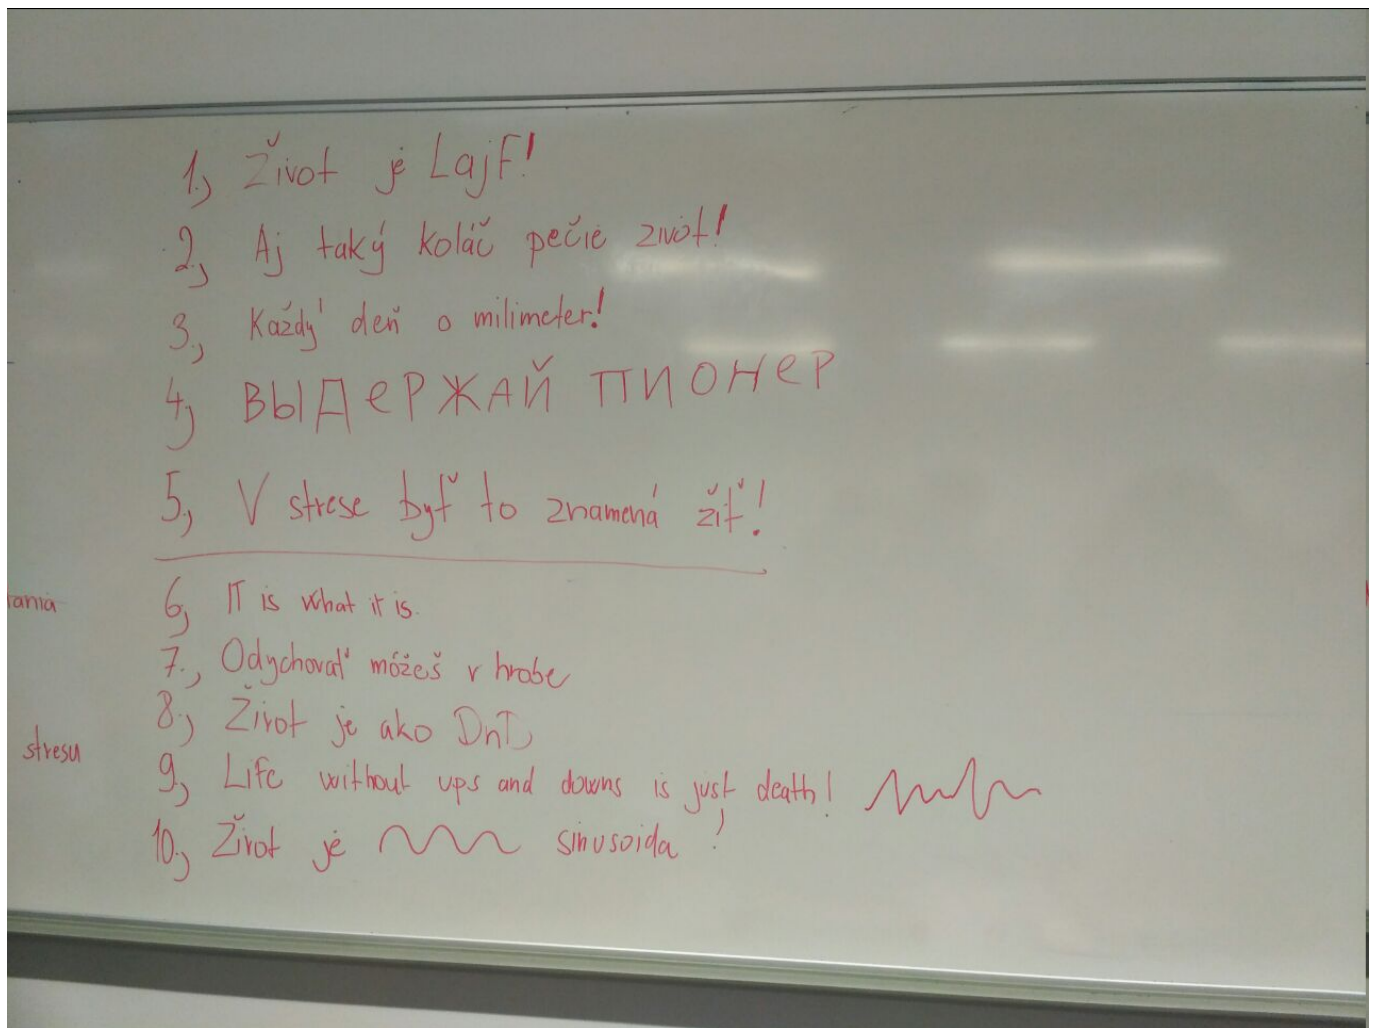 1., Život je Lajf!
2., Aj taký koláč pečie zivot!
3., Každý deň o milimeter!
4, ВЫДеРЖАЙ ПИОНеР
5, V strese byť to znamená žiť!
rania
6, IT is what it is.
7., Odychovať môžeš v hrobe
8., Život je ako DnD
stresu
9, Life without ups and downs is just death!
10., Život je sinusoida!